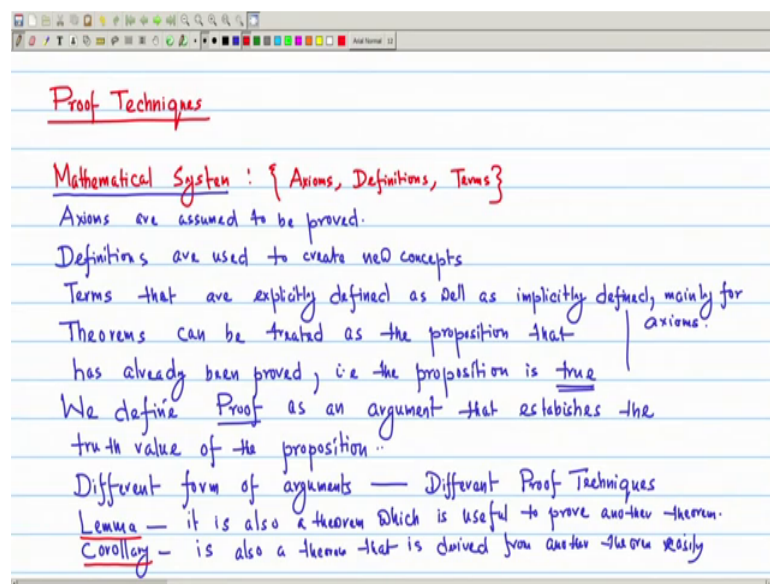 Arial Normal 12
Proof Techniques
Mathematical System : { Axioms, Definitions, Terms}
Axions are assumed to be proved.
Definitions are used to create new concepts
Terms that are explicitly defined as well as implicitly defined, mainly for
axioms.
Theorems can be treated as the proposition that
has already been proved, i.e the proposition is true
We define Proof as an argument that estabishes the
truth value of the proposition..
Different form of arguments — Different Proof Techniques
Lemma — it is also a theorem which is useful to prove another theorem.
Corollary — is also a theorem that is derived from another theorem easily